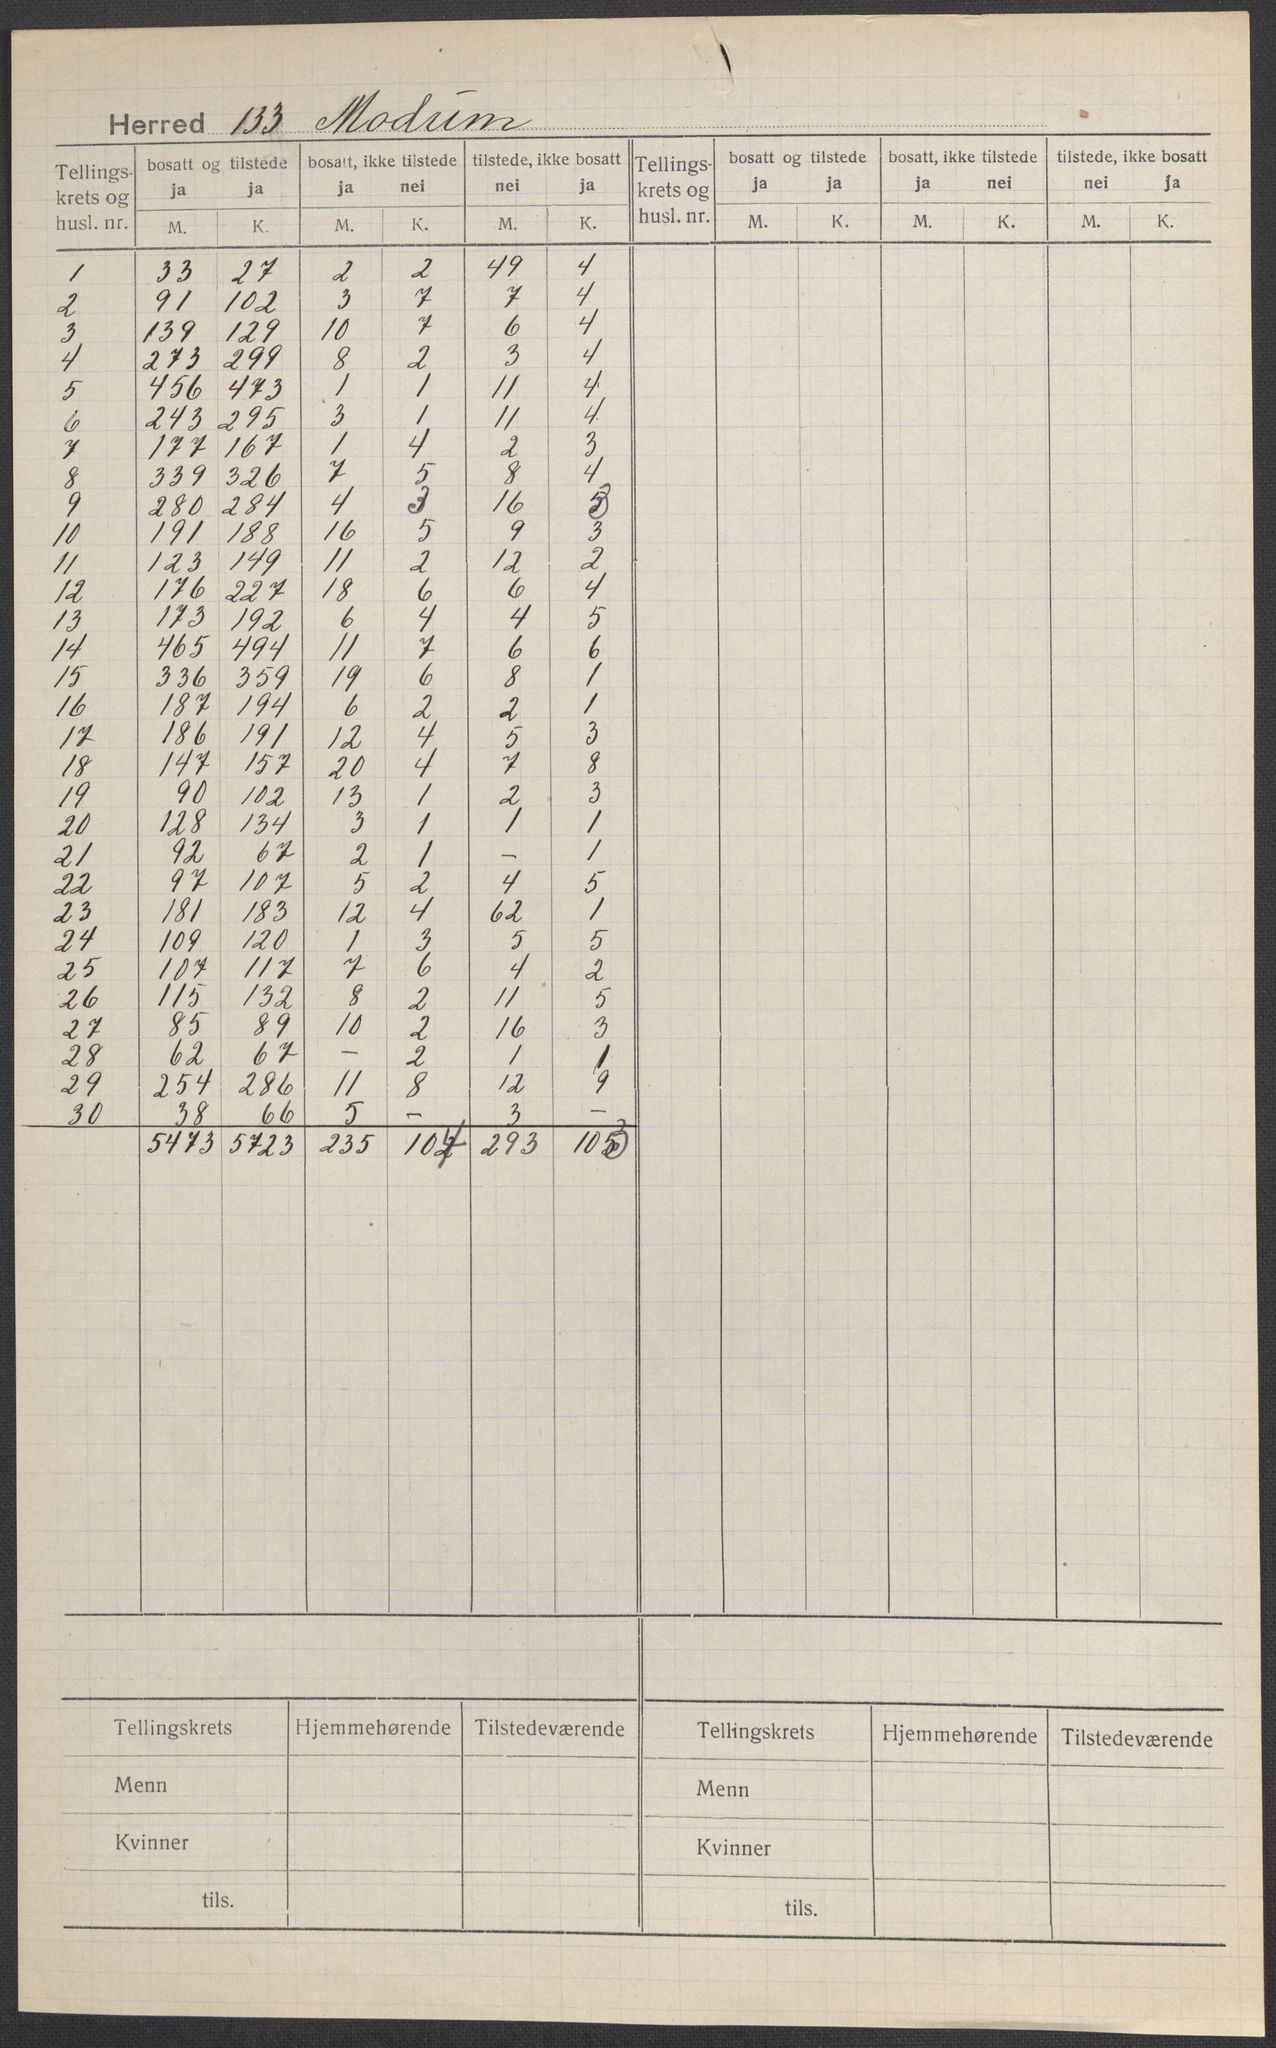 Herred 133 Modum
Tellings- krets og husl. nr. | bosatt og tilstede ja ja M. K. | bosatt, ikke tilstede ja nei M. K. | tilstede, ikke bosatt nei ja M. K. | Tellings- krets og husl. nr. | bosatt og tilstede ja ja M. K. | bosatt, ikke tilstede ja nei M. K. | tilstede, ikke bosatt nei ja M. K.
1 33 27 2 2 49 4
2 91 102 3 7 7 4
3 139 129 10 7 6 4
4 273 299 8 2 3 4
5 456 473 1 1 11 4
6 243 295 3 1 11 4
7 177 167 1 4 2 3
8 339 326 7 5 8 4
9 280 284 4 3 16 3
10 191 188 16 5 9 3
11 123 149 11 2 12 2
12 176 227 18 6 6 4
13 173 192 6 4 4 5
14 465 494 11 7 6 6
15 336 359 19 6 8 1
16 187 194 6 2 2 1
17 186 191 12 4 5 3
18 147 157 20 4 7 8
19 90 102 13 1 2 3
20 128 134 3 1 1 1
21 92 67 2 1 – 1
22 97 107 5 2 4 5
23 181 183 12 4 62 1
24 109 120 1 3 5 5
25 107 117 7 6 4 2
26 115 132 8 2 11 5
27 85 89 10 2 16 3
28 62 67 – 2 1 1
29 254 286 11 8 12 9
30 38 66 5 – 3 –
5473 5723 235 104 293 103
Tellingskrets Hjemmehørende Tilstedeværende Tellingskrets Hjemmehørende Tilstedeværende
Menn Menn
Kvinner Kvinner
tils. tils.